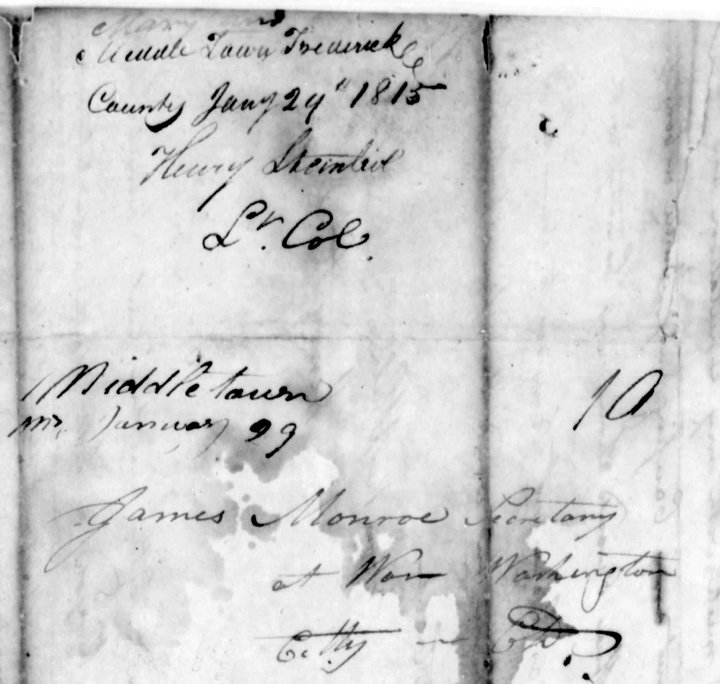 Maryland
Middle Town Frederick
County Jany 24th 1815
Henry
Lt. Col.
Middletown
January 29
10
James Monroe Secretary
at War Washington
Citty